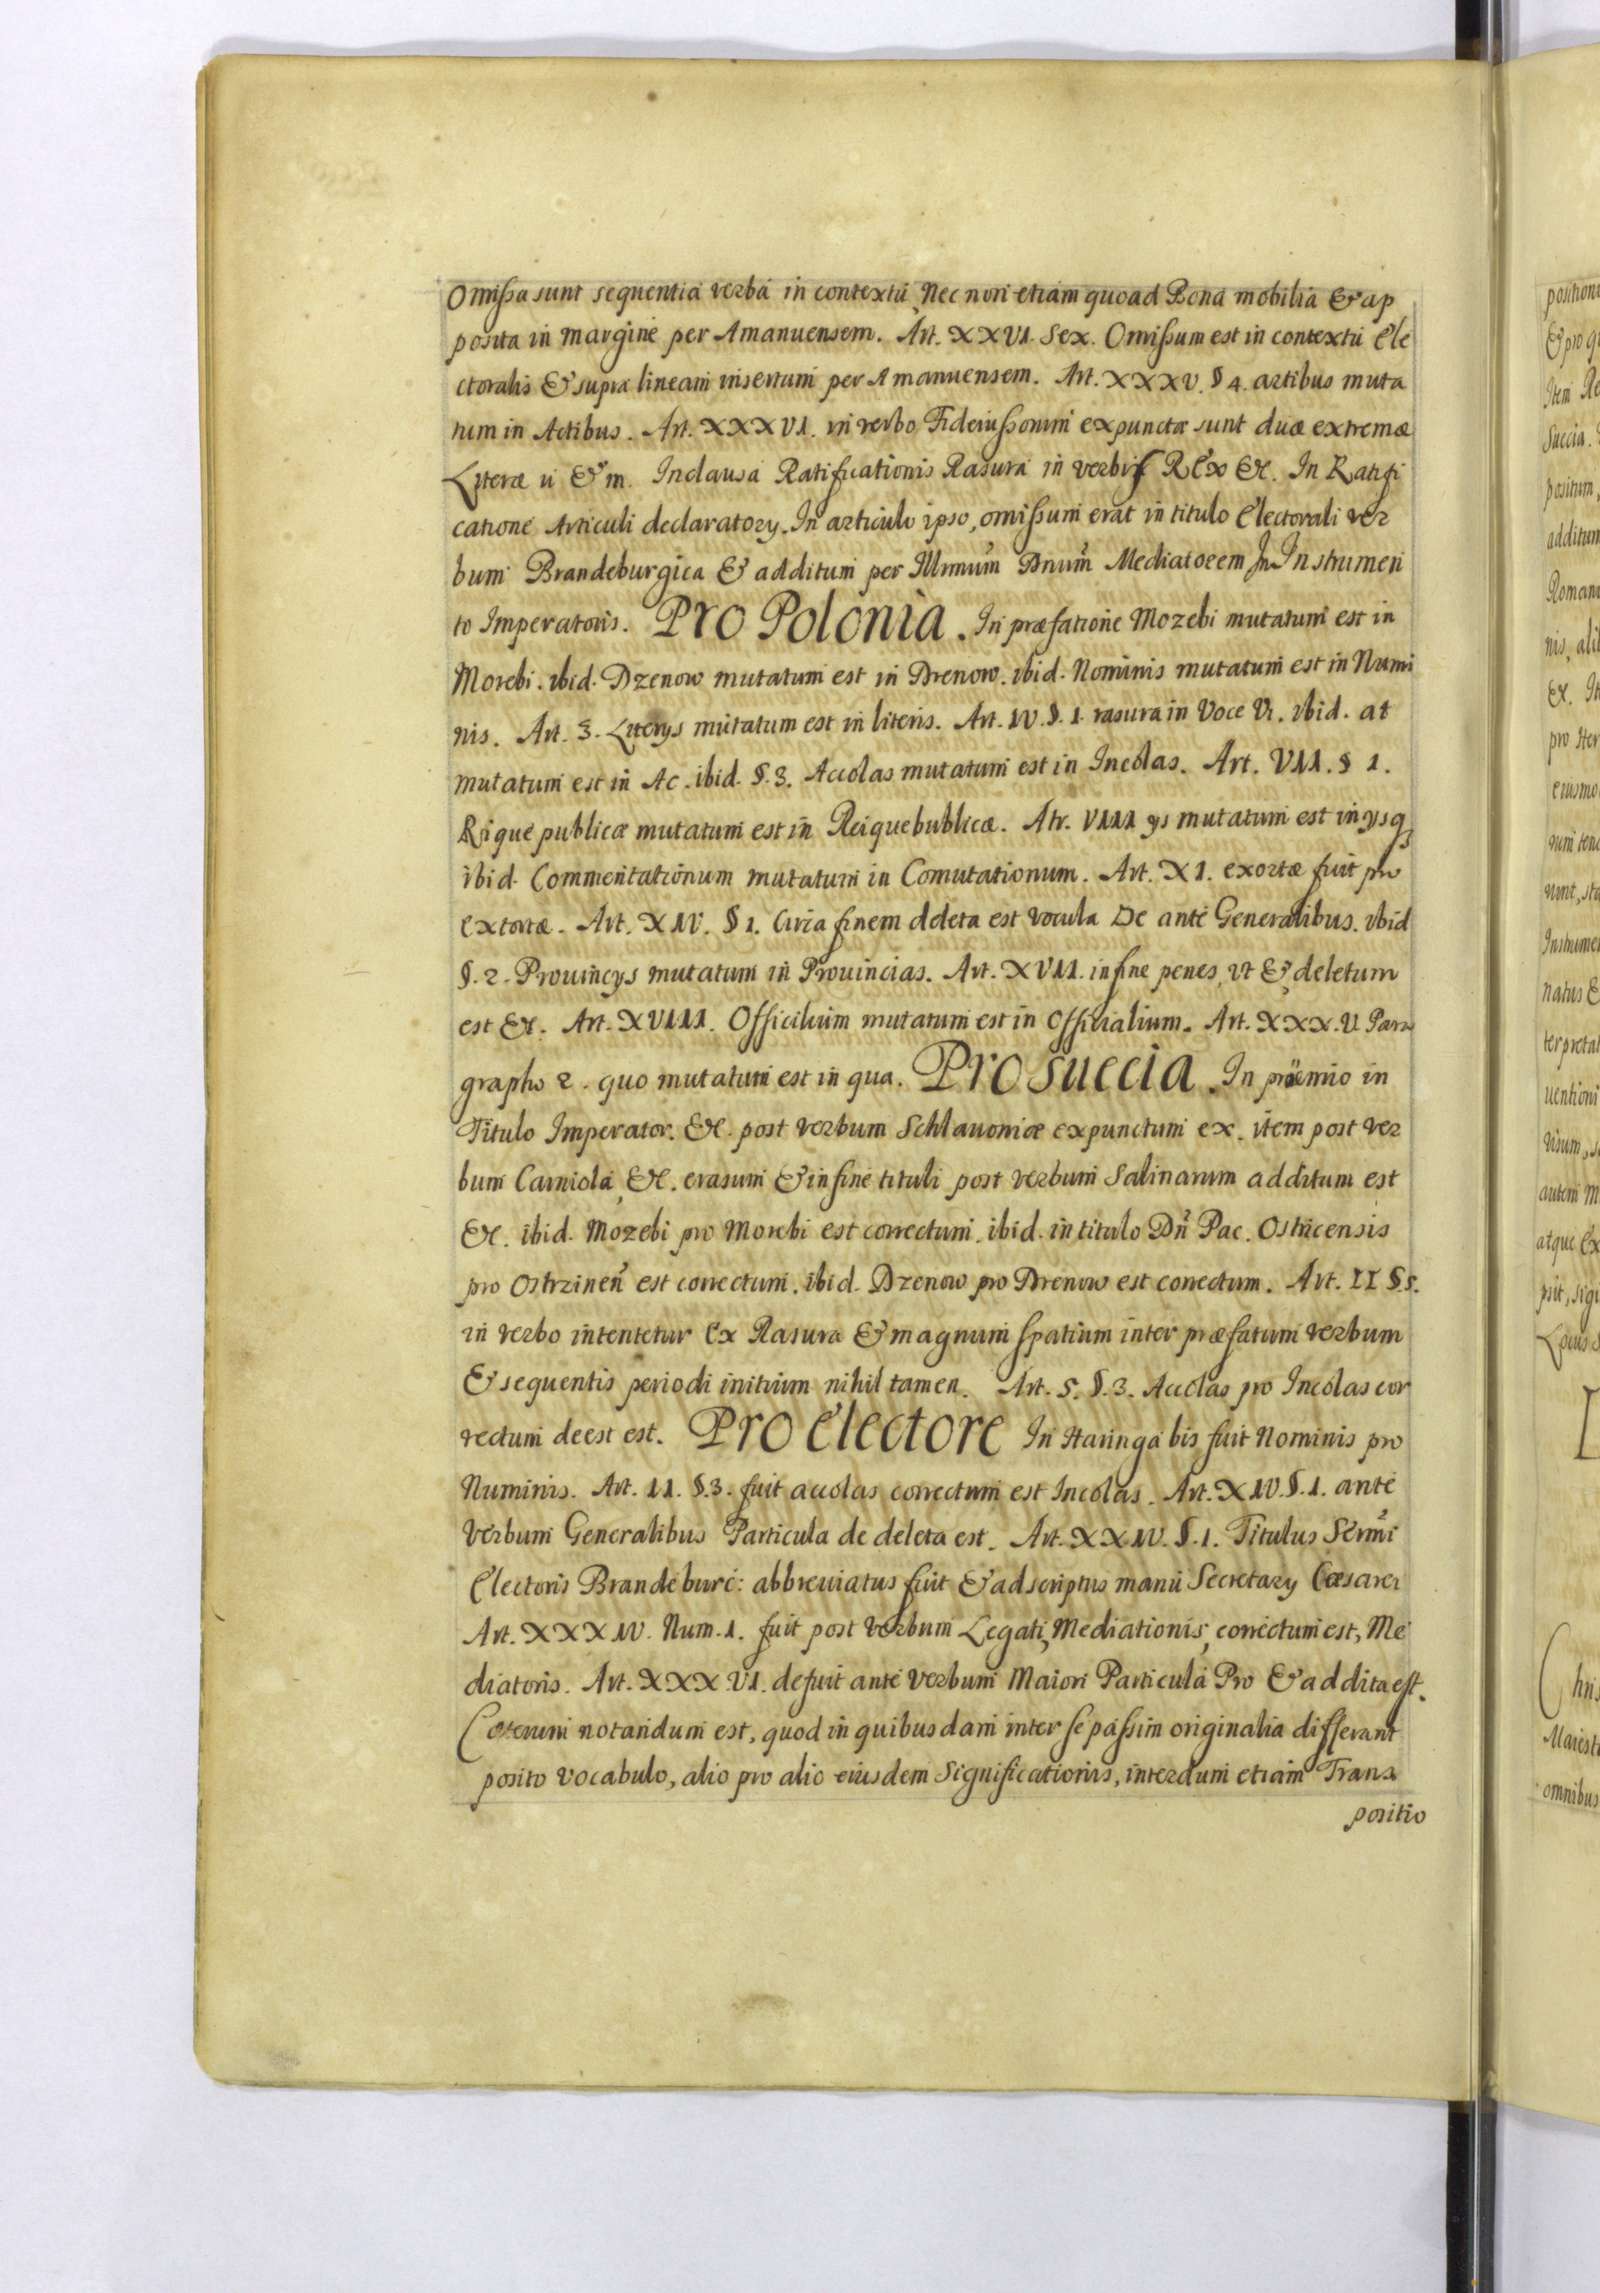 Omissa sunt sequentia verba in contextu, Nec non etiam quoad Bona mobilia & ap
posita in margine per Amanuensem. Art. XXVI. Sex. Omissum est in contextu Ele
ctoralis & supra lineam insertum per Amanuensem. Art. XXXV. § 4. artibus muta
tum in Actibus. Art. XXXVI. in verbo Fideiussorum expunctæ sunt duæ extremæ
Literæ u & m. In clausa Ratificationis Rasura in verbis Rex &c. In Ratifi
catione Articuli declaratory. In articulo ipso, omissum erat in titulo Electorali ver
bum Brandeburgica & additum per Illmum Dnum Mediatorem In Instrumen
to Imperatoris. Pro Polonia. In præfatione Mozebi mutatum est in
Morebi. ibid. Dzenow mutatum est in Drenow. ibid. Nominis mutatum est in Numi
nis. Art. 3. Literys mutatum est in literis. Art. IV. §. 1. rasura in Voce Vi. ibid. at
mutatum est in Ac. ibid. §. 3. Accolas mutatum est in Incolas. Art. VII. § 1.
Rique publicæ mutatum est in Reiquebublicæ. Atr. VIII ys mutatum est in ysq
ibid. Commentationum mutatum in Comutationum. Art. XI. exortæ fuit pro
extortæ. Art. XIV. § 1. Circa finem ddeta est vocula De ante Generalibus. ibid
§. 2. Prouincys mutatum in Prouincias. Art. XVII. in fine penes, ut &, deletum
est &c. Art. XVIII. Officilium mutatum est in Officialium. Art. XXX.V. Para
grapho 2. quo mutatum est in qua. Pro Suecia. In proemio in
Titulo Imperator. &c. post verbum Schlauoniæ expunctum ex. item post ver
bum Carniola, &c. erasum & in fine tituli post verbum Salinarum additum est
&c. ibid. Mozebi pro Morebi est correctum. ibid. in titulo Dn Pac. Ostricensis
pro Ostrzinen est correctum. ibid. Dzenow pro Drenow est correctum. Art. II §.5.
in verbo intentetur ex Rasura & magnum spatium inter præfatum verbum
& sequentis periodi initium nihil tamen. Art. 5. §. 3. Accolas pro Incolas cor
rectum deest est. Pro Electore In Haringa bis fuit Nominis pro
Numinis. Art. II. §.3. fuit accolas correctum est Incolas. Art. XIV. §. 1. ante
verbum Generalibus Particula de deleta est. Art. XXIV. §. 1. Titulus Sermi
Electoris Brandeburc: abbreuiatus fuit & adscriptus manu Secretary Cæsarei
Art. XXXIV. Num. 1. fuit post verbum Legati, Mediationis, correctum est, Me
diatoris. Art. XXXVI. defuit ante verbum Maiori Particula Pro & addita est.
Cæterum notandum est, quod in quibusdam inter se passim originalia differant
posito vocabulo, alio pro alio eiusdem Significationis, interdum etiam Trans
positio